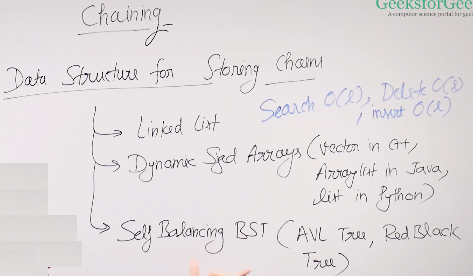 GeeksforGee
A computer science portal for geek
Chaining
Data Structure for Storing Chains
Search O(l), Delete O(l)
, insert O(l)
Linked List
Dynamic Sized Arrays (Vector in C++,
ArrayList in Java,
list in Python)
Self Balancing BST (AVL Tree, Red Black
Tree)